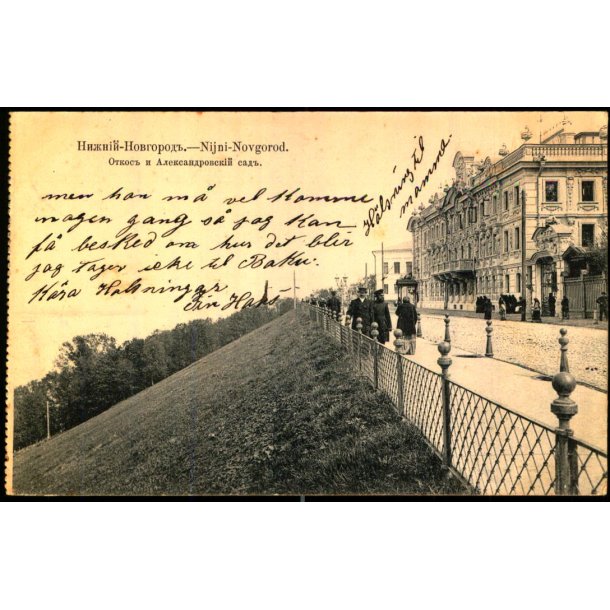 Нижній-Новгородъ.—Nijni-Novgorod.
Откосъ и Александровскій садъ.
men han må vel komme
nogen gang så jag kan
få besked om hur det bler
jag tager icke til Baku.
Kära Halsningar
Din Hans
Hälsning til
mamma.